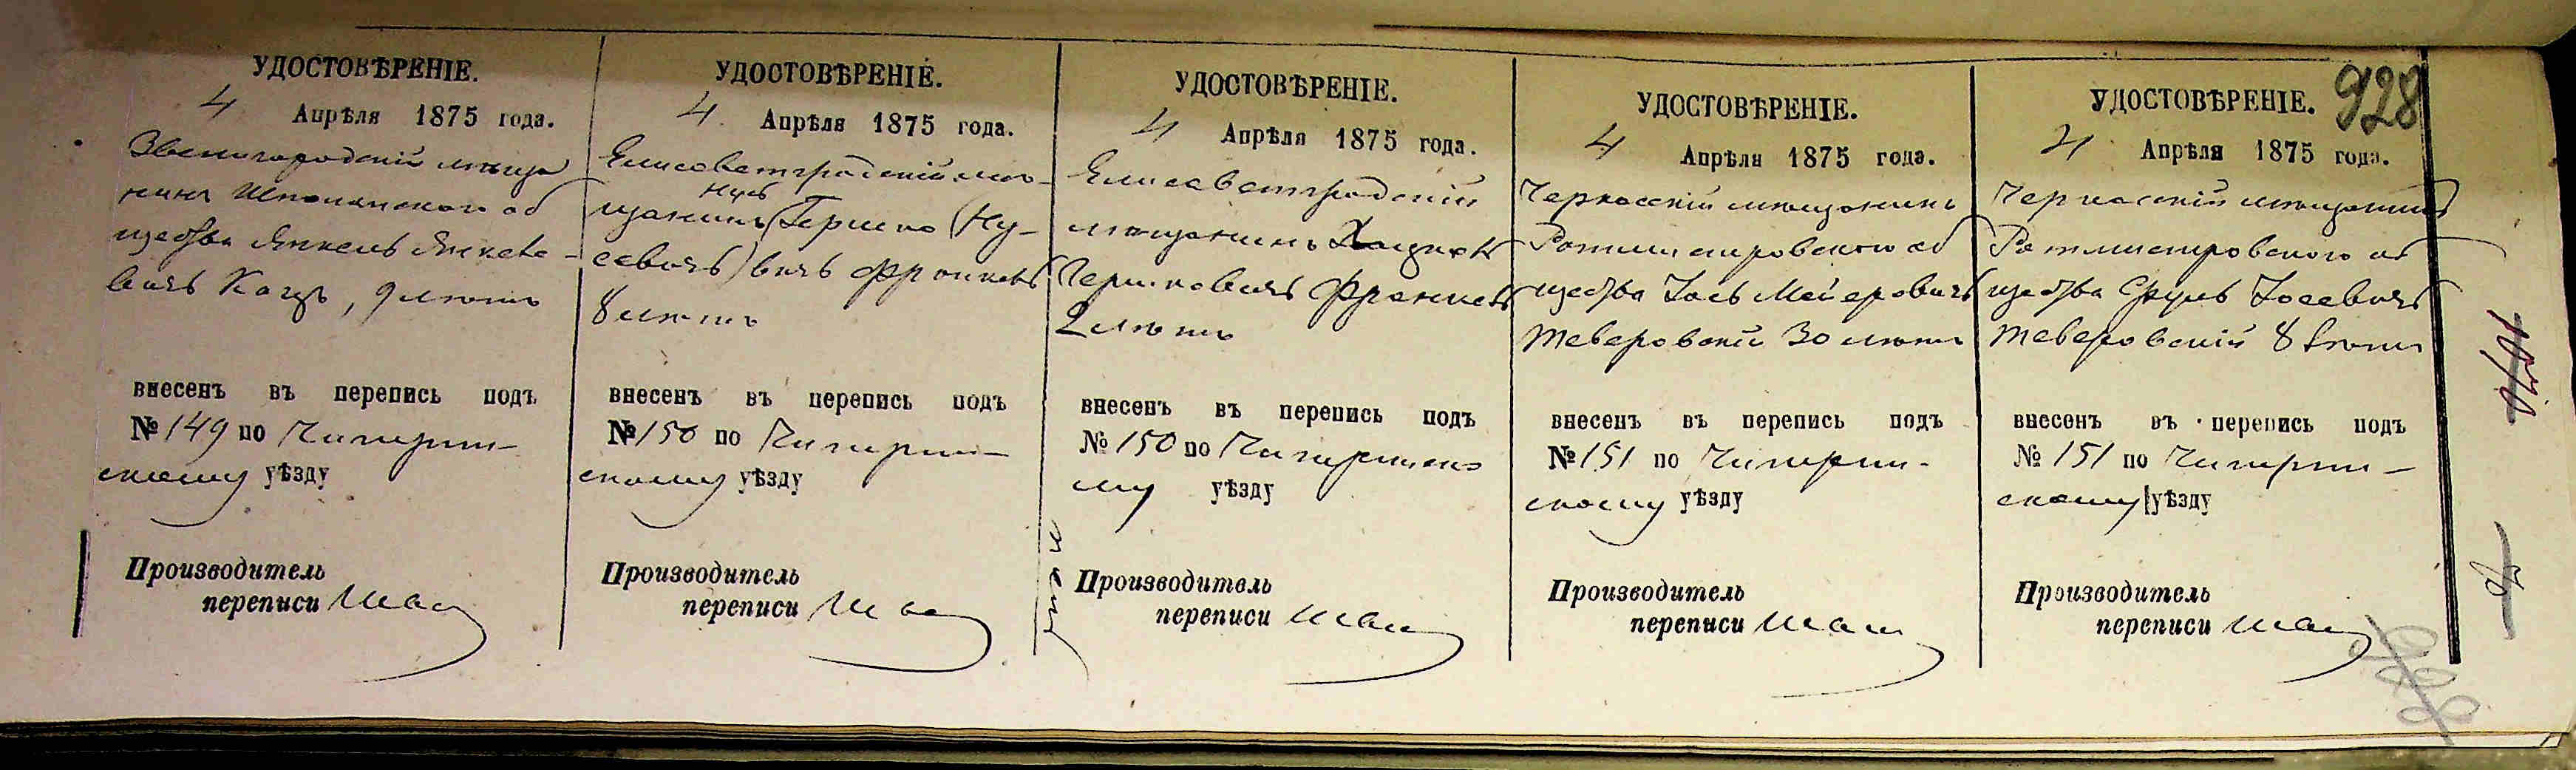 928
УДОСТОВѢРЕНІЕ.
4 Апрѣля 1875 года.
Звенигородскій мѣща
нинъ Шполянскаго об
щества Янкель Янкеле-
вичъ Кацъ, 9 лѣтъ
внесенъ въ перепись подъ
№ 149 по Чигирин-
скому уѣзду
Производитель
переписи
УДОСТОВѢРЕНІЕ.
4 Апрѣля 1875 года.
Елисаветградскій мѣ-
щанинъ (Гершко (Ну-
севичъ) вичъ Франкель
8 лѣтъ
внесенъ въ перепись подъ
№ 150 по Чигирин-
скому уѣзду
Производитель
переписи
УДОСТОВѢРЕНІЕ.
4 Апрѣля 1875 года.
Елисаветградскій
мѣщанинъ
Гершковичъ Франкель
2 лѣтъ
внесенъ въ перепись подъ
№ 150 по Чигиринско
му уѣзду
Производитель
переписи
УДОСТОВѢРЕНІЕ.
4 Апрѣля 1875 года.
Черкасскій мѣщанинъ
Ротмистровскаго об
щества Іось Мейеровичъ
Тверовскій 30 лѣтъ
внесенъ въ перепись подъ
№ 151 по Чигирин-
скому уѣзду
Производитель
переписи
УДОСТОВѢРЕНІЕ.
4 Апрѣля 1875 года.
Черкасскій мѣщанинъ
Ротмистровскаго об
щества Сруль Іосевичъ
Теверовскій 8 лѣтъ
внесенъ въ перепись подъ
№ 151 по Чигирин-
скому уѣзду
Производитель
переписи